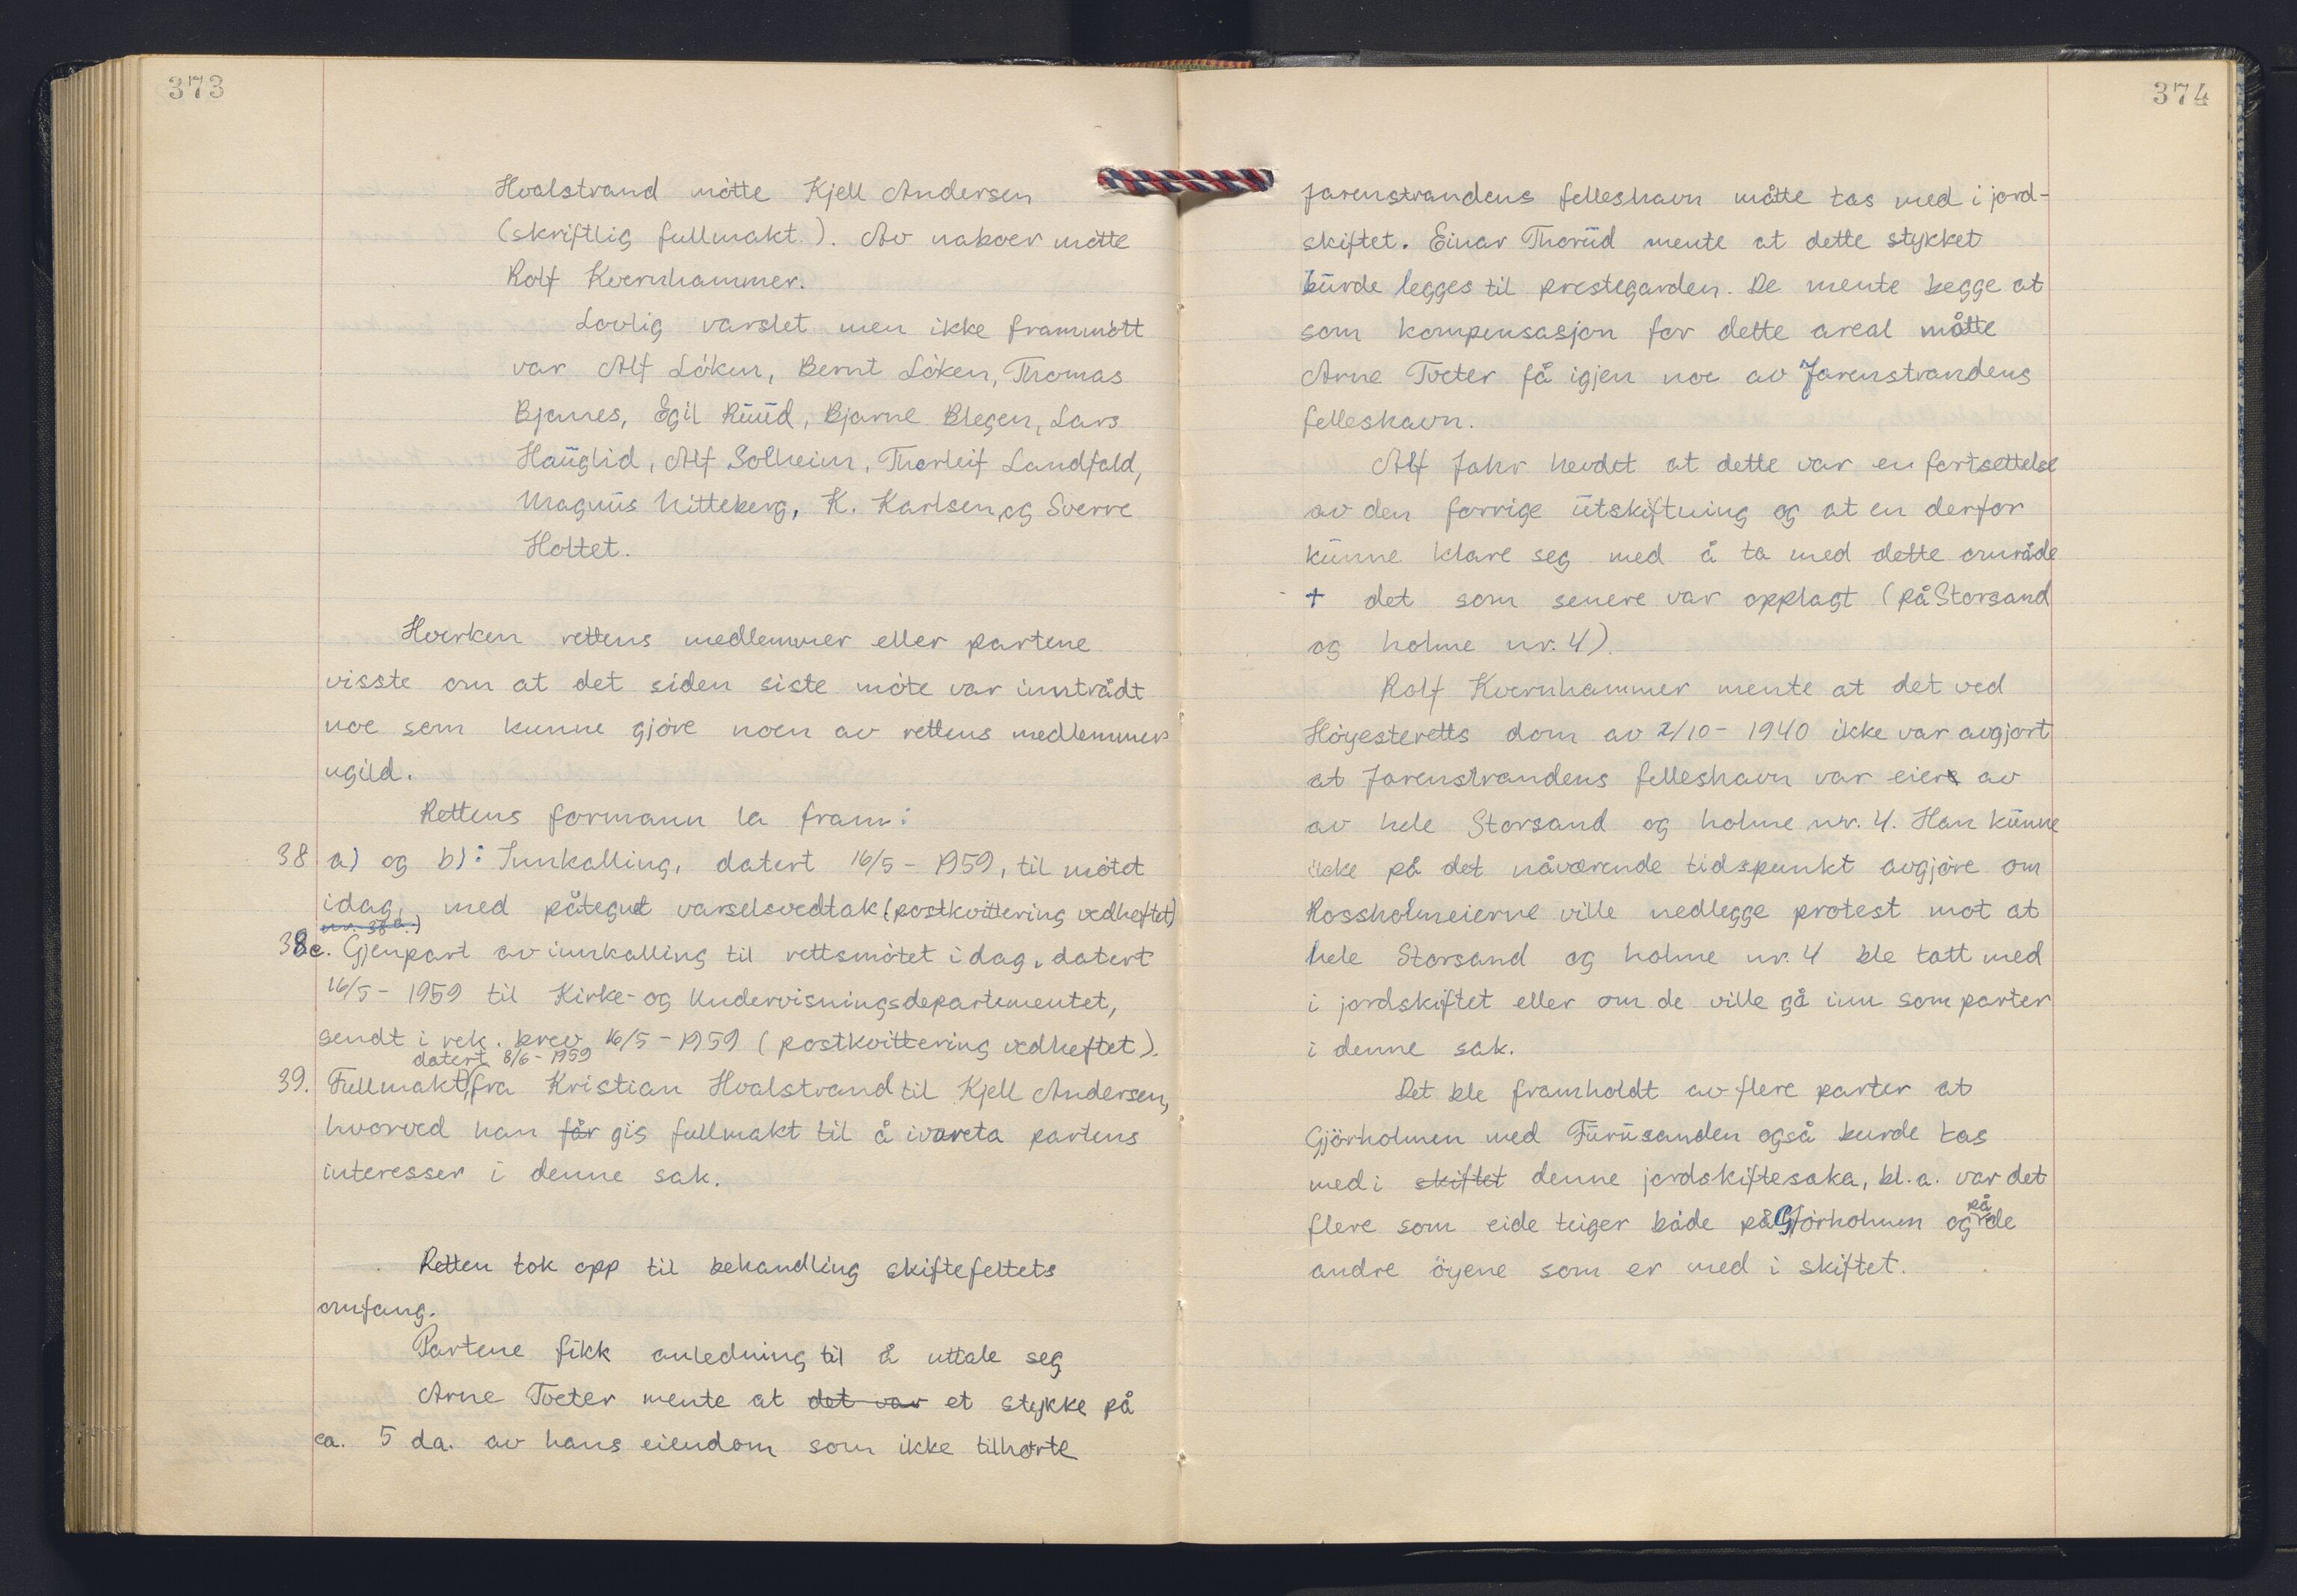 373
Hvalstrand møtte Kjell Andersen
(skriftlig fullmakt). Av naboer møtte
Rolf Kvernhammer.
Lovlig varslet men ikke frammøtt
var Alf Løken, Bernt Løken, Thomas
Bjønnes, Egil Ruud, Bjarne Blegen, Lars
Hauglid, Alf Solheim, Thorleif Landfald,
Magnus Nitteberg, K. Karlsen og Sverre
Holtet.
Hverken rettens medlemmer eller partene
visste om at det siden siste møte var inntrådt
noe som kunne gjøre noen av rettens medlemmer
ugild.
Rettens formann la fram:
38 a) og b): Innkalling, datert 16/5 - 1959, til møtet
idag, med påtegnet varselsvedtak (postkvittering vedheftet)
nr. 38 a.)
38c. Gjenpart av innkalling til rettsmøtet idag, datert
16/5 - 1959 til Kirke- og Undervisningsdepartementet,
sendt i rek. brev 16/5 - 1959 (postkvittering vedheftet).
datert 8/6 - 1959
39. Fullmakt, fra Kristian Hvalstrand til Kjell Andersen,
hvorved han får gis fullmakt til å ivareta partens
interesser i denne sak.
Retten tok opp til behandling skiftefeltets
omfang.
Partene fikk anledning til å uttale seg
Arne Tveter mente at det var et stykke på
ca. 5 da. av hans eiendom som ikke tilhørte
374
Jarenstrandens felleshavn måtte tas med i jord-
skiftet. Einar Thorud mente at dette stykket
burde legges til prestegarden. De mente begge at
som kompensasjon for dette areal måtte
Arne Tveter få igjen noe av Jarenstrandens
felleshavn.
Alf Jahr hevdet at dette var en fortsettelse
av den forrige utskiftning og at en derfor
kunne klare seg med å ta med dette område
+ det som senere var opplagt (på Storsand
og holme nr. 4).
Rolf Kvernhammer mente at det ved
Høyesteretts dom av 2/10 - 1940 ikke var avgjort
at Jarenstrandens felleshavn var eier av
av hele Storsand og holme nr. 4. Han kunne
ikke på det nåværende tidspunkt avgjøre om
Rossholmeierne ville nedlegge protest mot at
hele Storsand og holme nr. 4 ble tatt med
i jordskiftet eller om de ville gå inn som parter
i denne sak.
Det ble framholdt av flere parter at
Gjörholmen med Furusanden også burde tas
med i skiftet denne jordskiftesaka, bl.a. var det
flere som eide teiger både på Gjörholmen og på de
andre öyene som er med i skiftet.